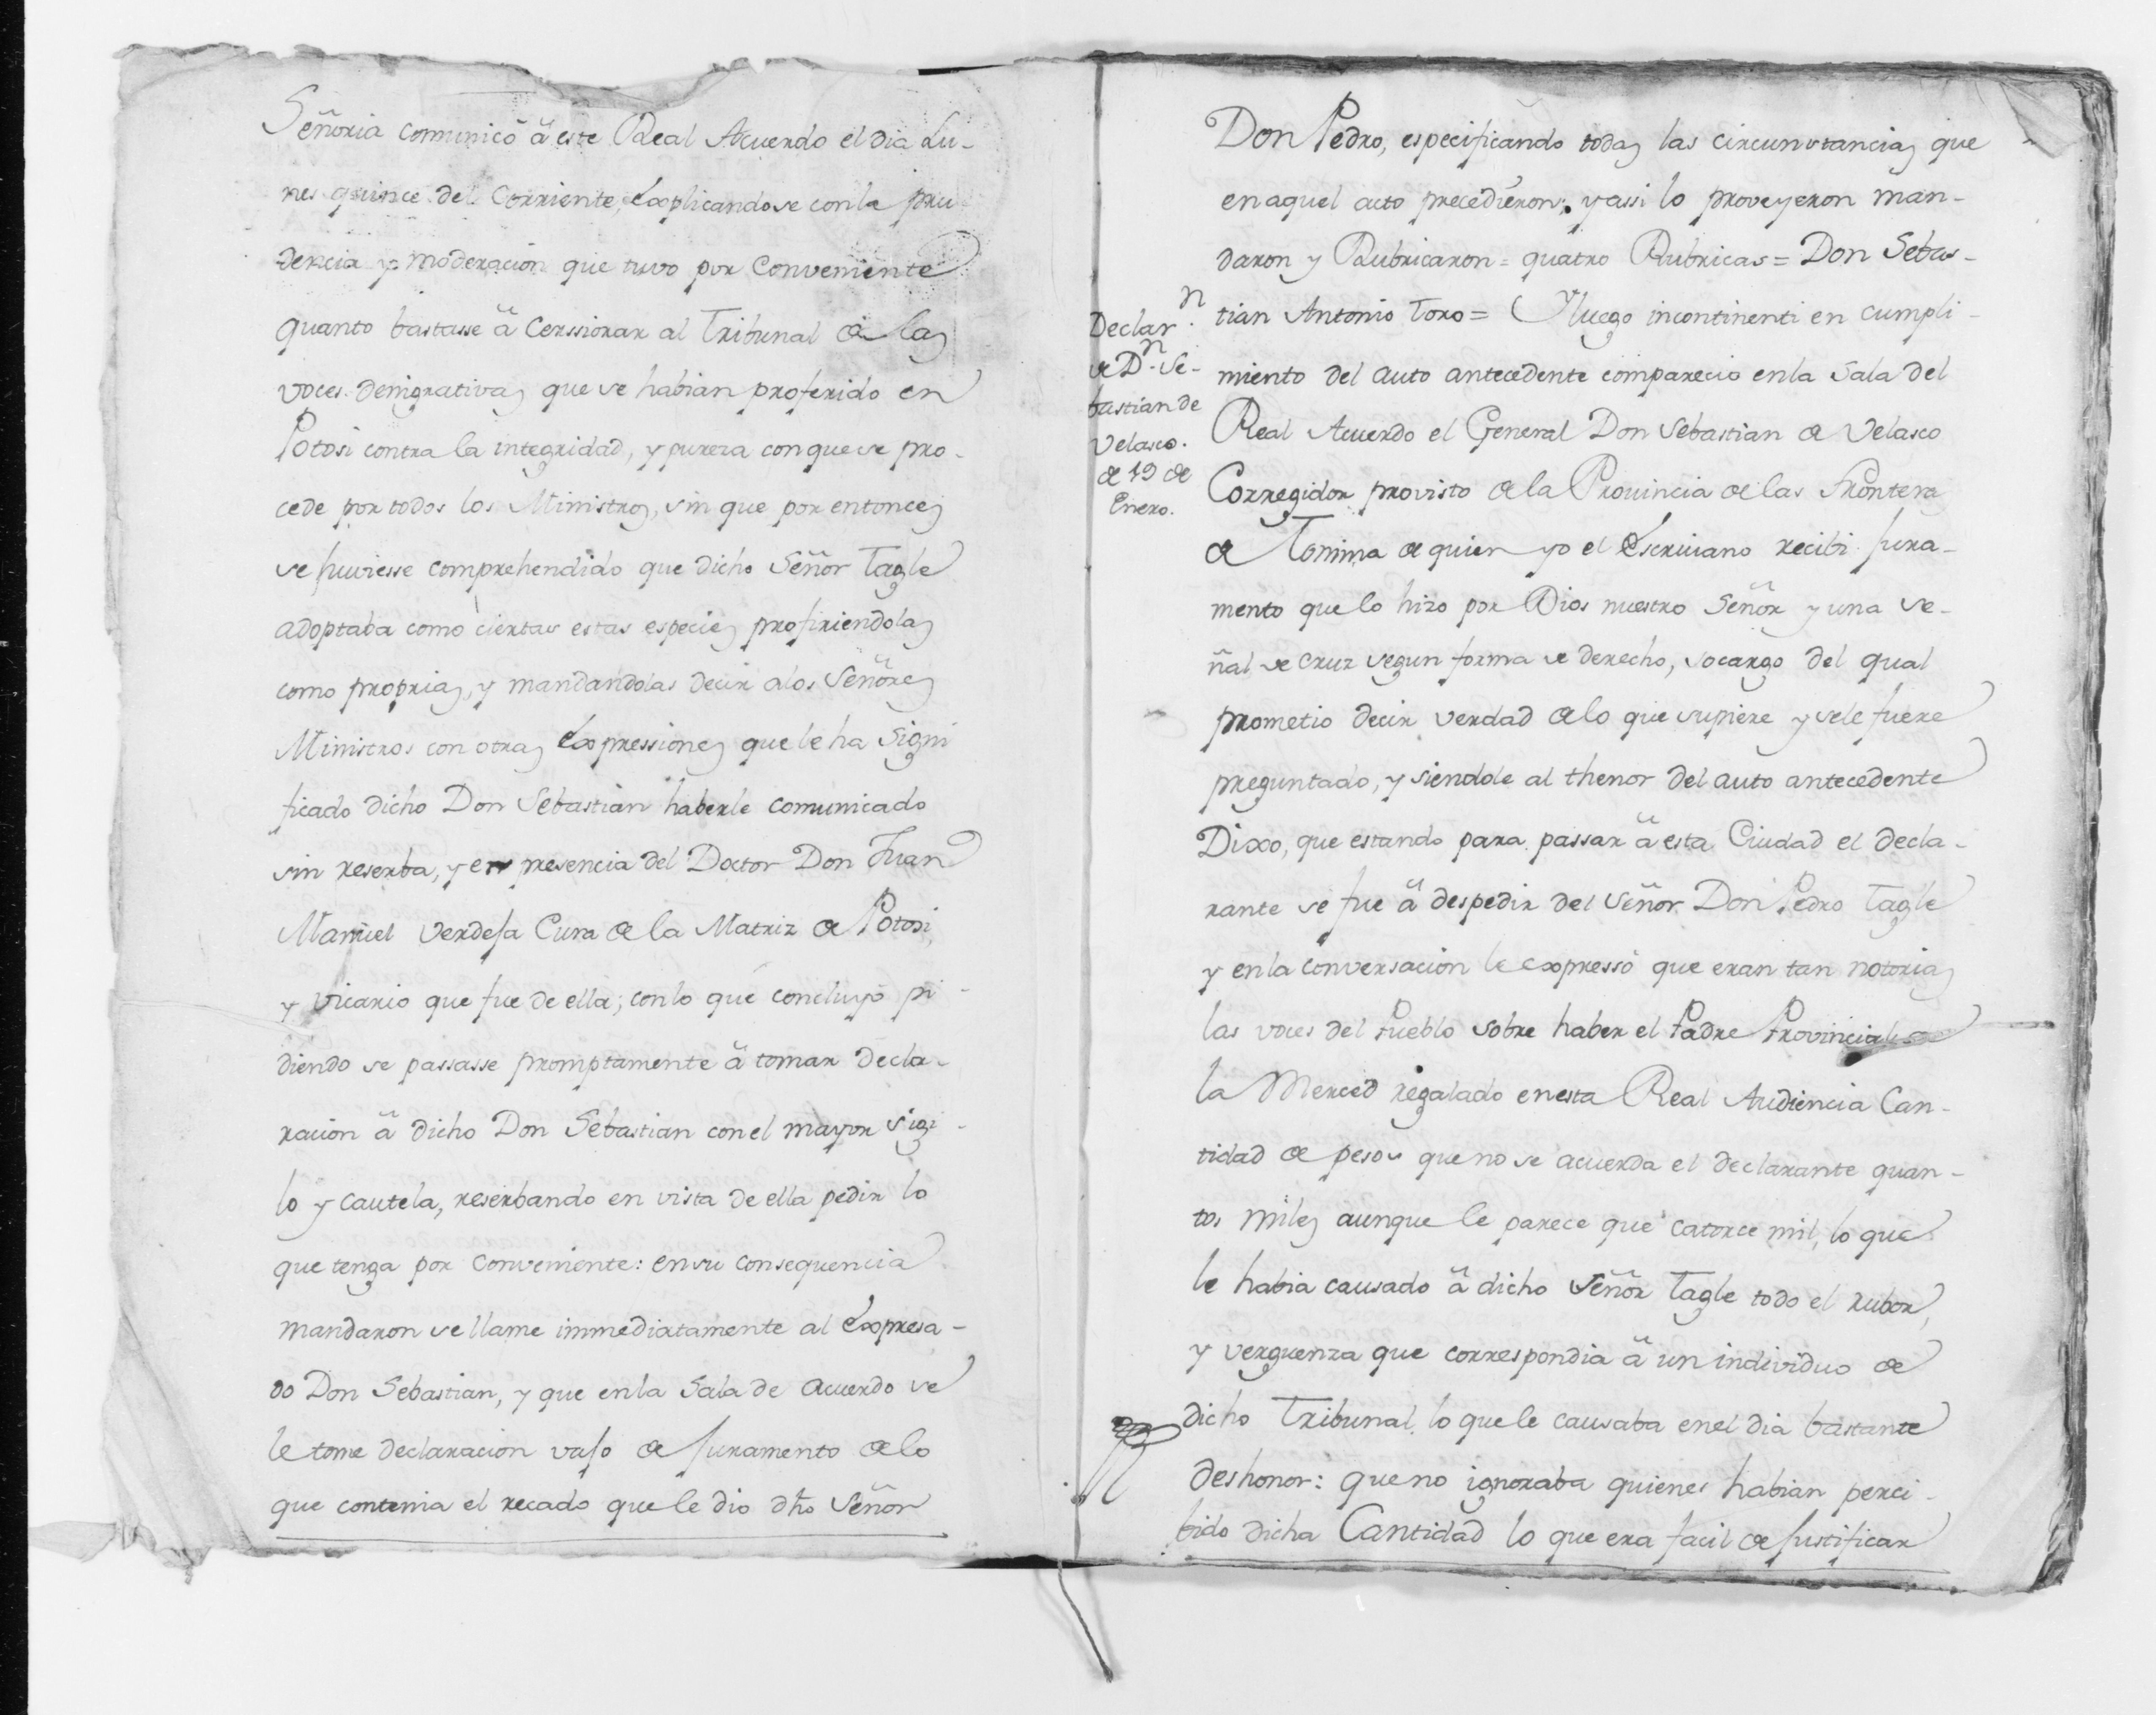 Señoria comunicó â este Real Acuerdo el dia Lu-
nes quince del Corriente, Explicandose con la pru
dencia y moderacion que tuvo por Conveniente
quanto bastasse â Cerssiorar al Tribunal de las
voces denigrativas que se habian proferido en
Potosi contra la integridad, y pureza con que se pro-
cede por todos los Ministros, sin que por entonces
se huviesse comprehendido que dicho Señor Tagle
adoptaba como ciertas estas especies profiriendolas
como proprias, y mandandolas decir a los Señores
Ministros con otras Expressiones que le ha Signi
ficado dicho Don Sebastian haberle comunicado
sin reserba, y en presencia del Doctor Don Juan
Manuel Verdeja Cura de la Matriz de Potosi,
y Vicario que fue de ella; con lo que concluyó pi-
diendo se passasse promptamente â tomar decla-
racion â dicho Don Sebastian con el mayor sigi-
lo y Cautela, reserbando en vista de ella pedir lo
que tenga por Conveniente: en su consequencia
mandaron se llame immediatamente al Expresa-
do Don Sebastian, y que en la Sala de Acuerdo se
le tome declaracion vajo de Juramento de lo
que contenia el recado que le dio dho Señor
Don Pedro, especificando todas las circunstancias que
en aquel acto precedieron; y assi lo proveyeron man-
daron y Rubricaron = quatro Rubricas = Don Sebas-
tian Antonio Toro = Y luego incontinenti en cumpli-
miento del auto antecedente comparecio en la Sala del
Real Acuerdo el General Don Sebastian de Velasco
Corregidor provisto de la Provincia de las Fronteras
de Tomina de quien yo el Escrivano recibi Jura-
mento que lo hizo por Dios nuestro Señor y una se-
ñal de cruz segun forma de derecho, socargo del qual
prometio decir verdad de lo que supiere y se le fuere
preguntado, y siendole al thenor del auto antecedente
Dixo, que estando para passar â esta Ciudad el decla-
rante se fue â despedir del Señor Don Pedro Tagle
y en la conversacion le expressó que eran tan notorias
las voces del Pueblo sobre haber el Padre Provincial de
la Merced regalado en esta Real Audiencia Can-
tidad de pesos que no se acuerda el declarante quan-
tos miles aunque le parece que catorce mil, lo que
le habia causado â dicho Señor Tagle todo el rubor,
y verguenza que correspondia â un individuo de
dicho Tribunal, lo que le causaba en el dia bastante
deshonor: que no ignoraba quienes habian perci-
bido dicha Cantidad lo que era facil de Justificar
Declar.n
de Dn. Se-
bastian de
Velasco.
de 19 de
Enero.